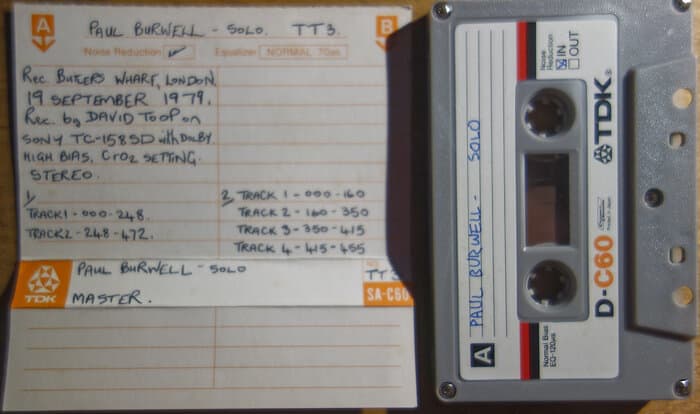 A
PAUL BURWELL - SOLO. TT3.
B
Noise Reduction Equalizer NORMAL 70us
Rec BUTLERS WHARF, LONDON.
19 SEPTEMBER 1979.
Rec. by DAVID TOOP on
SONY TC-158SD with DOLBY.
HIGH BIAS, CrO2 SETTING.
STEREO.
1/
TRACK 1 - 000-248.
TRACK 2 - 248-472.
2/ TRACK 1 - 000-160
TRACK 2 - 160-350
TRACK 3 - 350-415
TRACK 4 - 415-455
TDK
PAUL BURWELL - SOLO
MASTER.
NO.
TT3
SA-C60
A
PAUL BURWELL - SOLO
Noise
Reduction
IN
OUT
TDK
D-C60
Normal Bias
EQ-120us